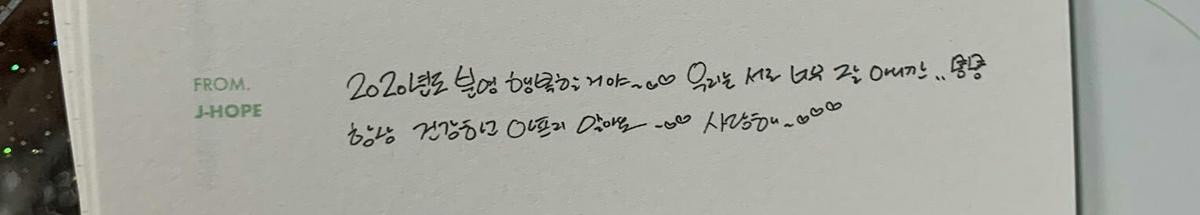 FROM.
J-HOPE
2020년도 분명 행복할 거야~♡♡ 우리는 서로 너무 잘 아니깐..
항상 건강하고 아프지 말아요~♡♡ 사랑해~♡♡♡